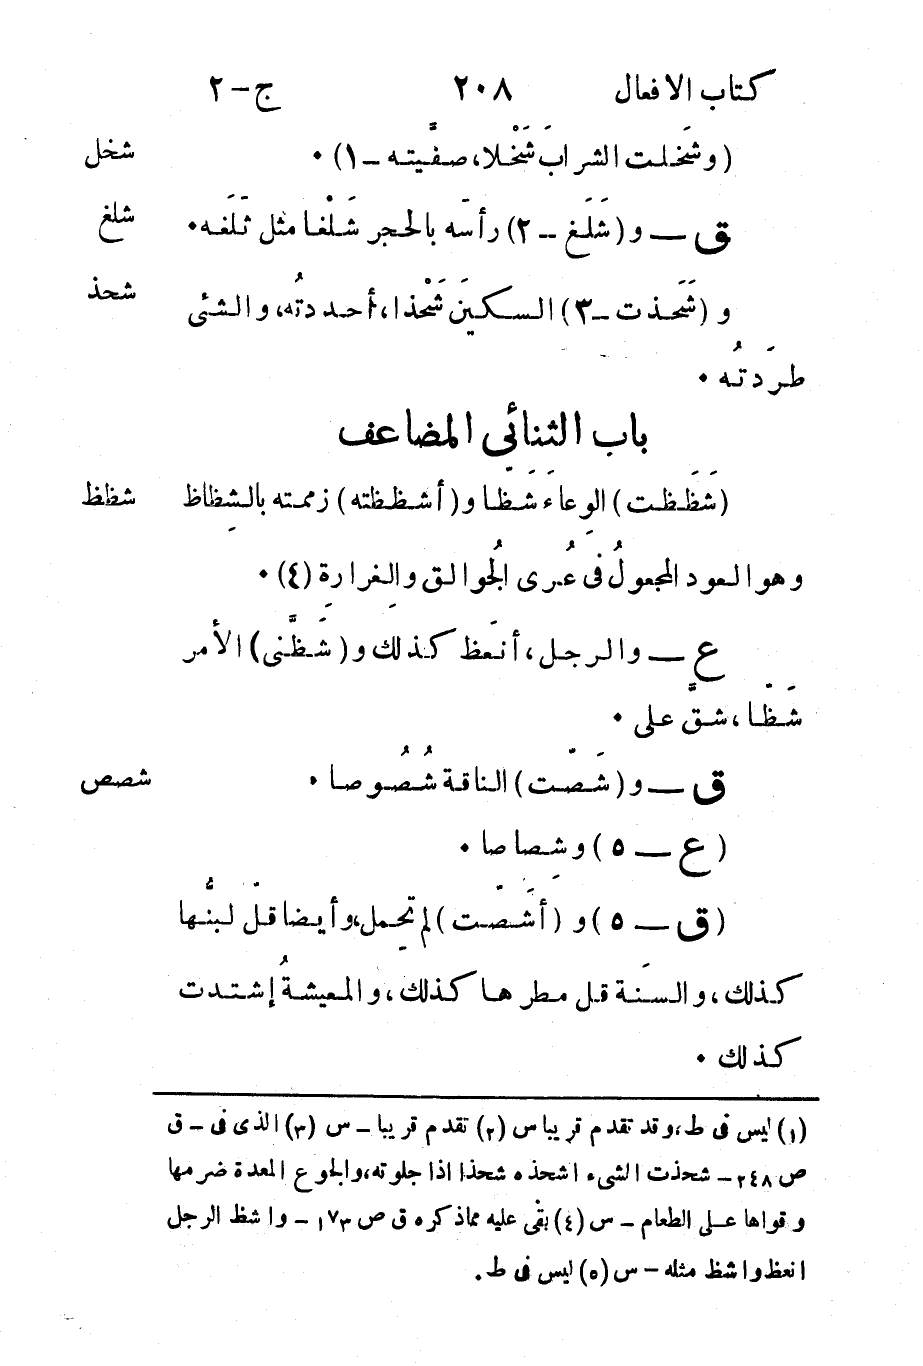 كتاب الافعال ٢٠٨ ج-٢
(وشَخلت الشرابَ شَخْلا، صفَّيته -١) • شخل
ق — و (شَلَغ - ٢) رأسَه بالحجر شَلْغا مثل ثَلَغَه • شلغ
و (شَحَذت -٣) السكينَ شَحْذا، أحددتُه، والشئي شحذ
طرَدتُه •
باب الثنائي المضاعف
(شَظَظت) الوِعاءَ شَظّا و(أشظظته) زممته بالشِظاظ شظظ
وهو العود المجعولُ فى عُرى الجُوالِق والغِرارة (٤) •
ع — والرجل، أنعَظ كذلك و(شَظَّنى) الأمر
شَظّا، شقَّ على •
ق — و (شَصّت) الناقة شُصُوصا • شصص
(ع — ٥) وشِصاصا •
(ق — ٥) و (أشَصّت) لم تحمِل، وأيضا قلّ لبنُها
كذلك، والسَنة قل مطرها كذلك، والمعيشةُ إشتدت
كذلك •
(١) ليس فى ط، وقد تقدم قريبا س (٢) تقدم قريبا - س (٣) الذى فى - ق
ص ٢٤٨ - شحذت الشىء اشحذه شحذا اذا جلوته، والجوع المعدة ضرمها
وقواها على الطعام - س (٤) بقى عليه مماذكره ق ص ١٧٣ - واشظ الرجل
انعظ واشظ مثله - س (٥) ليس فى ط.